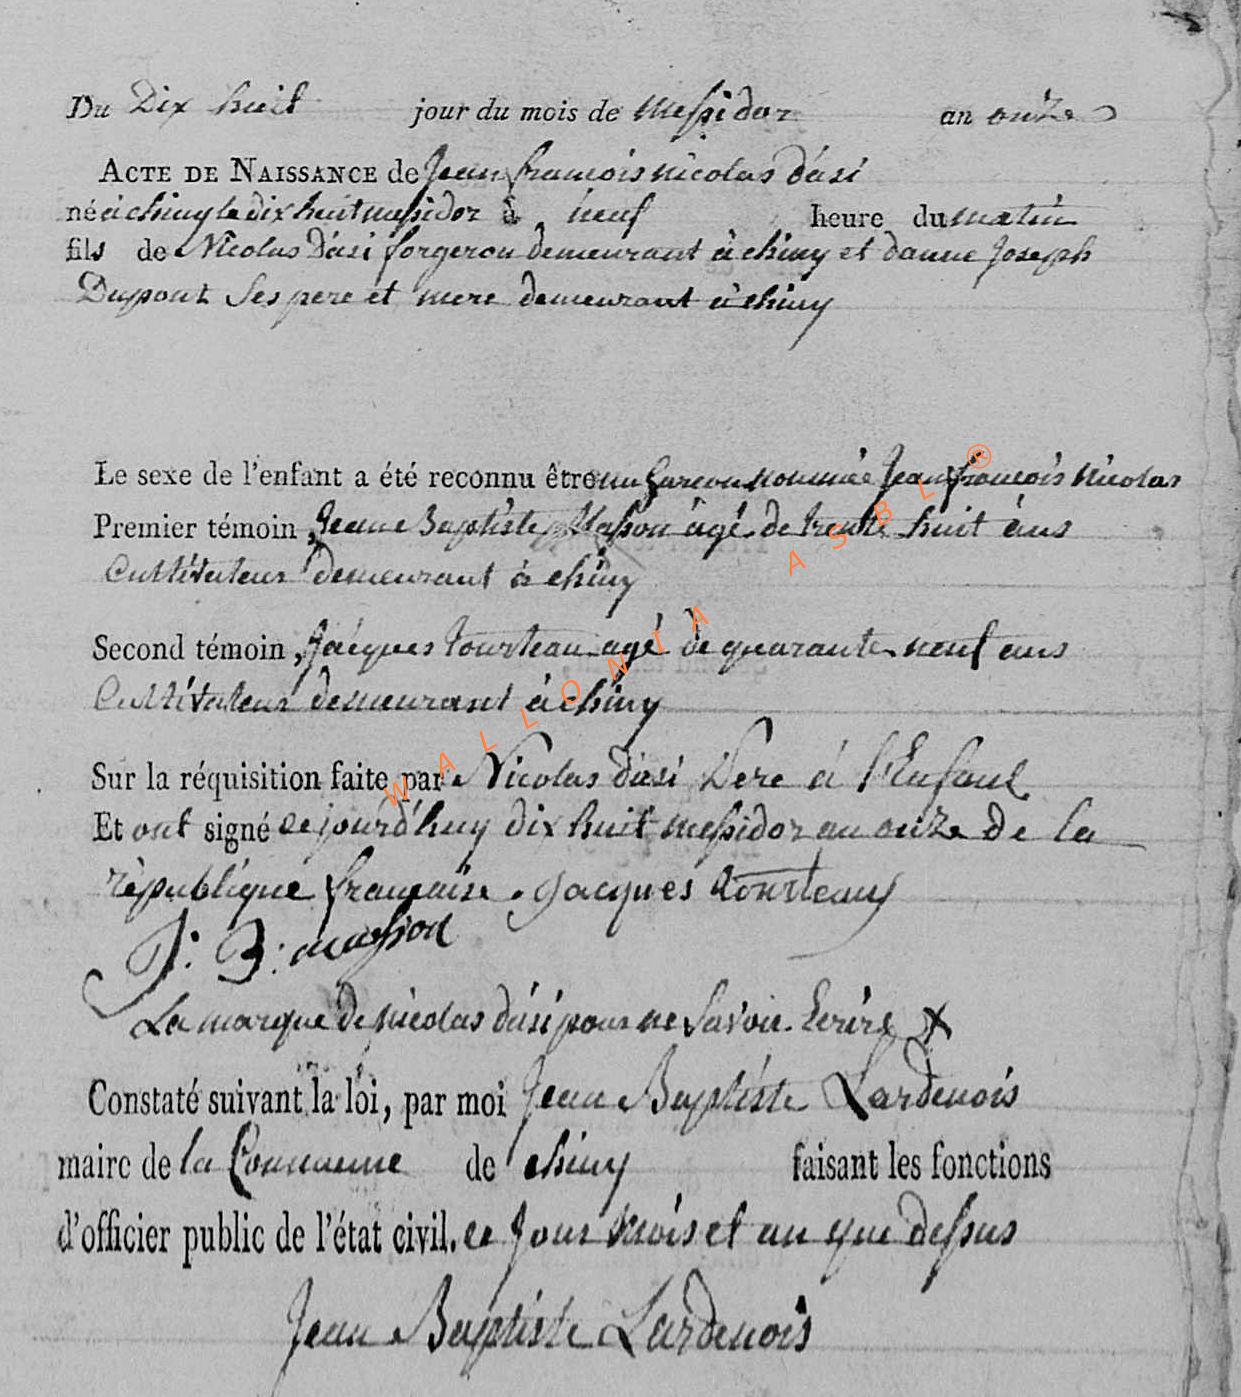 Du Dix huit jour du mois de Messidor an onze
ACTE DE NAISSANCE de Jean françois nicolas dasi
né à chiny le dix huit messidor à neuf heure du matin
fils de Nicolas Dasi forgeron demeurant à chiny et danne Joseph
Dupont Ses pere et mere demeurant à chiny
Le sexe de l'enfant a été reconnu être un garcon nommée Jean françois Nicolas
Premier témoin, Jean Baptiste Masson agé de trente huit ans
Cultivateur demeurant à chiny
Second témoin, Jacques tourteau agé de quarante neuf ans
Cultivateur demeurant à chiny
Sur la réquisition faite par Nicolas dasi Pere à l'Enfant
Et ont signé ce jourd'huy dix huit messidor an onze de la
republique française. jacques tourteau
J: B: masson
La marque de nicolas dasi pour ne Savoir Ecrire X
Constaté suivant la loi, par moi Jean Baptiste Lardenois
maire de la Commune de chiny faisant les fonctions
d'officier public de l'état civil. ce Jour mois et an que dessus
Jean Baptiste Lardenois
WALLONIA ASBL ®